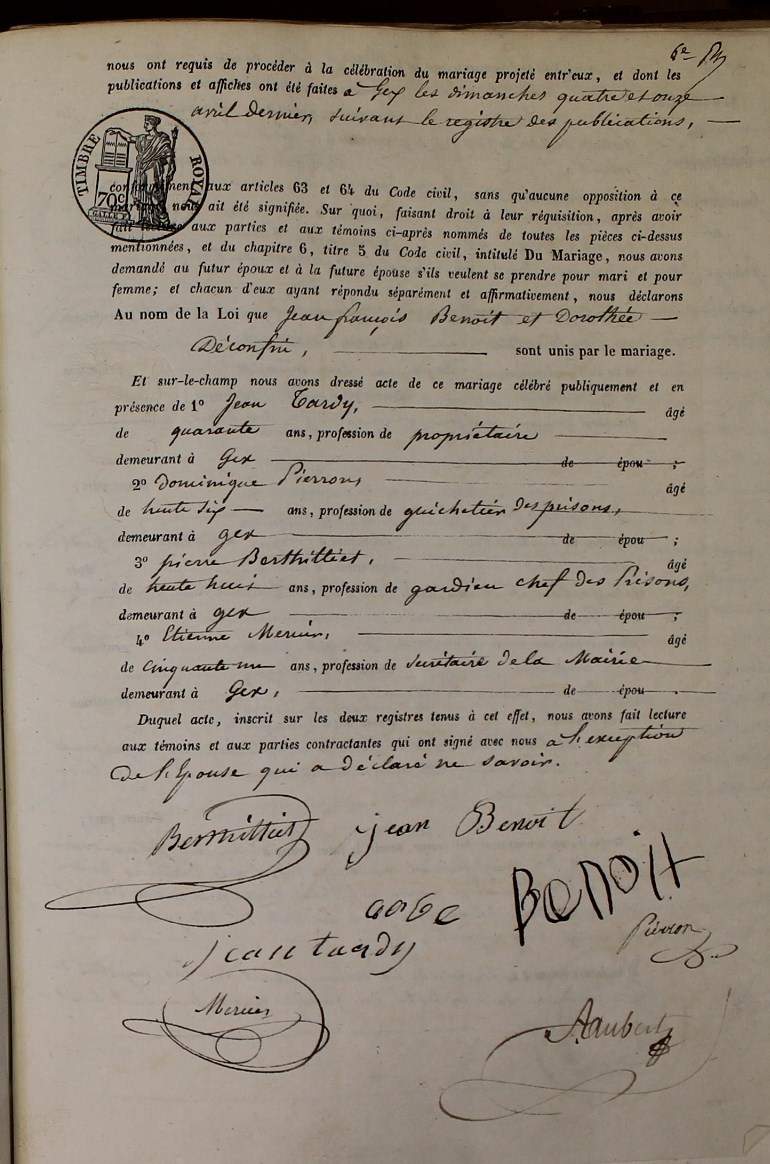 6e
nous ont requis de procéder à la célébration du mariage projeté entr'eux, et dont les
publications et affiches ont été faites à Gex les dimanches quatre et onze
avril dernier, suivant le registre des publications,
TIMBRE ROYAL
70c
conformément aux articles 63 et 64 du Code civil, sans qu'aucune opposition à ce
mariage nous ait été signifiée. Sur quoi, faisant droit à leur réquisition, après avoir
fait lecture aux parties et aux témoins ci-après nommés de toutes les pièces ci-dessus
mentionnées, et du chapitre 6, titre 5 du Code civil, intitulé Du Mariage, nous avons
demandé au futur époux et à la future épouse s'ils veulent se prendre pour mari et pour
femme; et chacun d'eux ayant répondu séparément et affirmativement, nous déclarons
Au nom de la Loi que Jean françois Benoit et Dorothée
Déconfin, sont unis par le mariage.
Et sur-le-champ nous avons dressé acte de ce mariage célébré publiquement et en
présence de 1º Jean Tardy, âgé
de quarante ans, profession de propriétaire
demeurant à Gex de épou ;
2º Dominique Pierron, âgé
de trente six ans, profession de guichetier des prisons,
demeurant à gex de épou ;
3º pierre Berthilliet, âgé
de trente huit ans, profession de gardien chef des Prisons,
demeurant à gex de épou ;
4º Etienne Mercier, âgé
de cinquante un ans, profession de secrétaire de la Mairie
demeurant à Gex, de épou .
Duquel acte, inscrit sur les deux registres tenus à cet effet, nous avons fait lecture
aux témoins et aux parties contractantes qui ont signé avec nous à l'exception
de l'Epouse qui a déclaré ne savoir.
Berthilliet jean Benoit
BenoiT
Pierron
jean tardy
Mercier
Aaubert